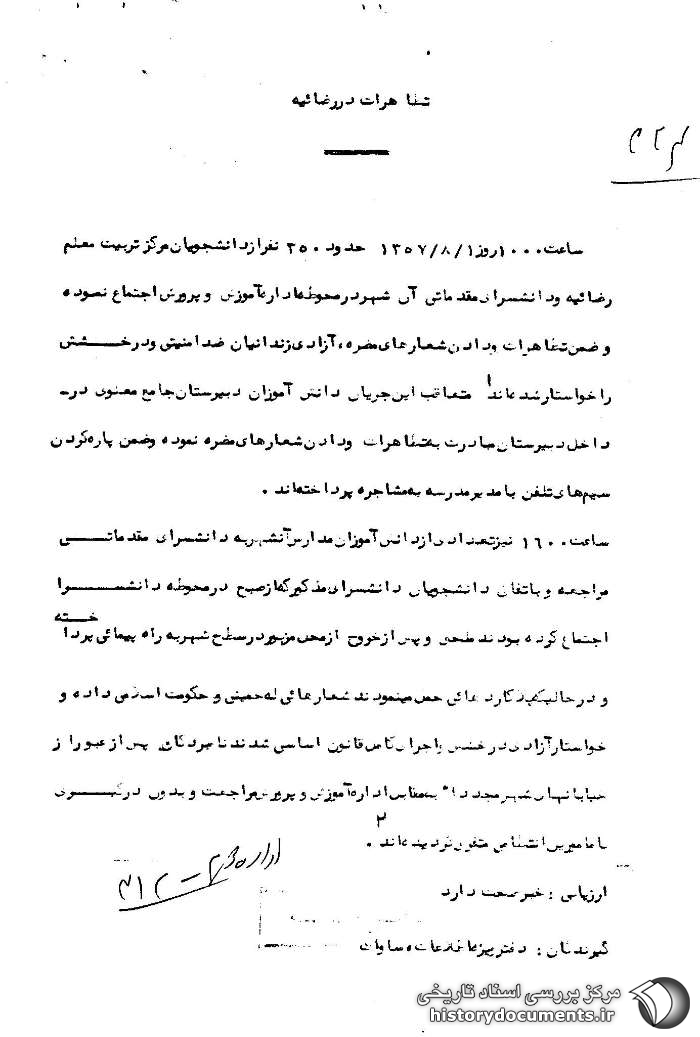 تظاهرات در رضائیه
ساعت ۱۰۰۰ روز ۱۳۵۷/۸/۱ حدود ۲۵۰ نفر از دانشجویان مرکز تربیت معلم
رضائیه و دانشسرای مقدماتی آن شهر در محوطه اداره آموزش و پرورش اجتماع نموده
و ضمن تظاهرات و دادن شعارهای مضره، آزادی زندانیان ضد امنیتی و درخشش
را خواستار شده‌اند متعاقب این جریان دانش آموزان دبیرستان جامع معنوی در
داخل دبیرستان مبادرت به تظاهرات و دادن شعارهای مضره نموده و ضمن پاره کردن
سیم‌های تلفن با مدیر مدرسه به مشاجره پرداخته‌اند .
ساعت ۱۶۰۰ نیز تعدادی از دانش آموزان مدارس آنشهر به دانشسرای مقدماتی
مراجعه و باتفاق دانشجویان دانشسرای مذکور که از صبح در محوطه دانشسرا
اجتماع کرده بودند ملحق و پس از خروج از محل مزبور در سطح شهر به راه پیمائی پرداخته
و در حالیکه پلاکاردهائی حمل مینمودند شعارهائی له خمینی و حکومت اسلامی داده و
خواستار آزادی درخشش و اجرای کامل قانون اساسی شدند نامبردگان پس از عبور از
خیابانهای شهر مجدداً به مقابل اداره آموزش و پرورش مراجعت و بدون درگیری
با مامورین انتظامی متفرق گردیده‌اند .
۲
ارزیابی : خبر صحت دارد
گیرندگان : دفتر ویژه اطلاعات ، ساواک
اداره
۳۱۲
مرکز بررسی اسناد تاریخی
historydocuments.ir